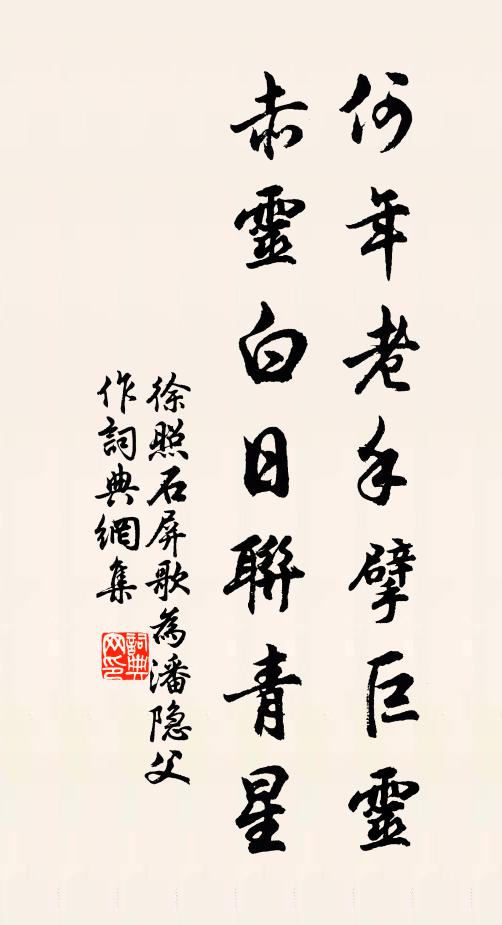 何年老手擘巨靈
赤靈白日聯青星
徐照石屏歌為潘隐父
作詞典網集
詞典
网印